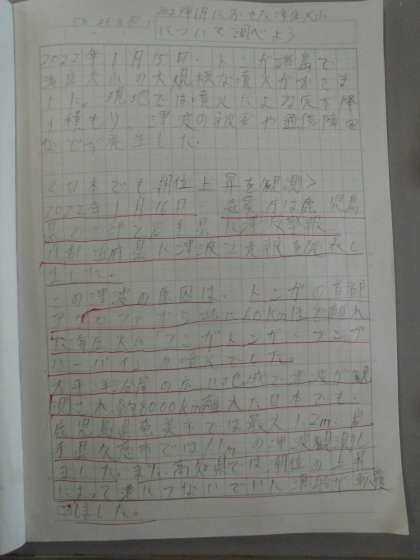 2022年1月におきた海底火山
について調べよう
2022年1月15日、トンガ諸島で
海底火山の大規模な噴火がおきま
した。現地では噴火による灰が降
り積もり、津波の被害や通信障害
などが発生した。
<日本でも潮位上昇を観測>
2022年1月16日 気象庁は鹿児島
県と岩手県に津波警報
に津波注意報を発表し
ました。
この津波の原因は、トンガの首都
ヌクアロファから北に60kmほど離れ
た海底火山「フンガトンガ・フンガ
ハーパイ」の噴火でした。
太平洋沿岸の広い地域で津波が観
測され、約8000km離れた日本でも、
鹿児島県奄美市では最大1.2m、岩
手県久慈市では1.1mの津波を観測し
ました。また、高知県では、潮位の上昇
によって港につないでいた漁船が転覆
しました。